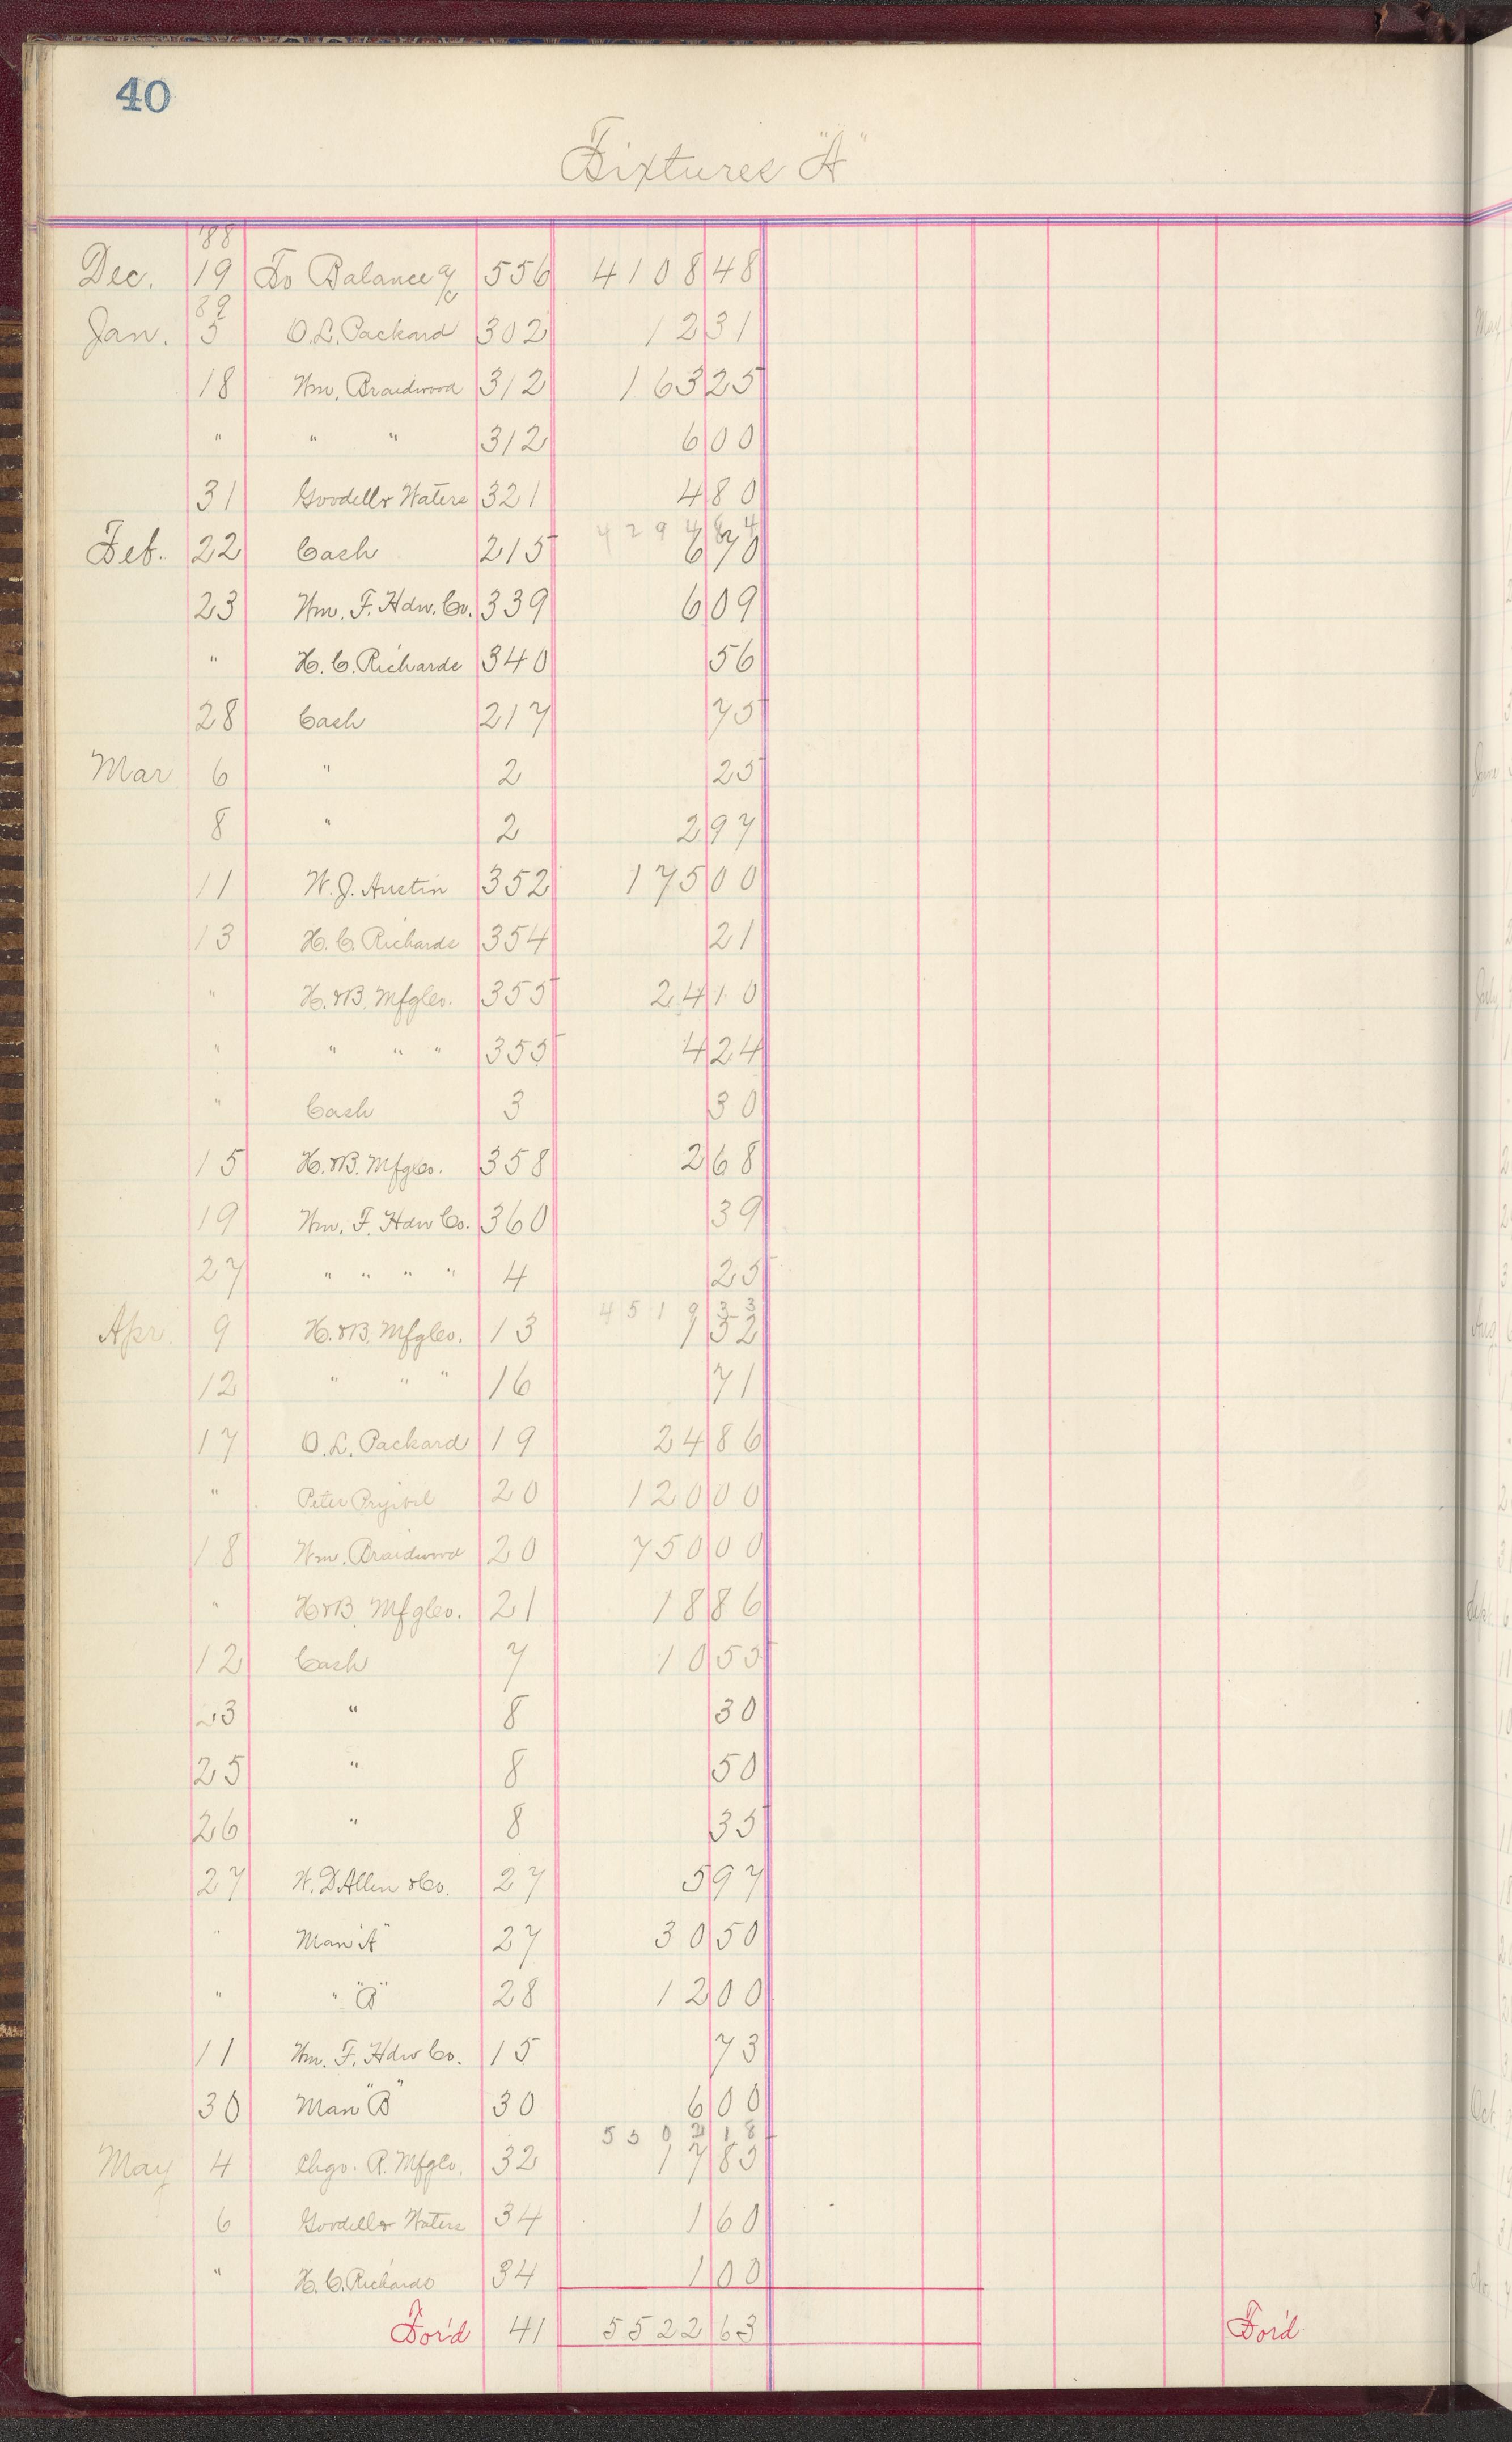 40
Fixtures "A"
'88
Dec. 19 To Balance a/c 556 4108 48
89
Jan. 5 O.L. Packard 302 12 31
18 Wm. Braidwood 312 163 25
" " " 312 6 00
31 Goodell & Waters 321 4 80
4294 84
Feb. 22 Cash 215 6 70
23 Wm. F. Hdw. Co. 339 6 09
" H. C. Richards 340 56
28 Cash 217 75
Mar 6 " 2 25
8 " 2 2 97
11 W. J. Austin 352 175 00
13 H. C. Richards 354 21
" H. & B. Mfg Co. 355 24 10
" " " " 355 4 24
" Cash 3 30
15 H. & B. Mfg Co. 358 2 68
19 Wm. F. Hdw Co. 360 39
27 " " " " 4 25
4519 33
Apr. 9 H. & B. Mfg Co. 13 1 52
12 " " " 16 71
17 O. L. Packard 19 24 86
" Peter Pryibil 20 120 00
18 Wm. Braidwood 20 750 00
" H & B. Mfg Co. 21 18 86
12 Cash 7 10 55
23 " 8 30
25 " 8 50
26 " 8 35
27 W. D Allen & Co. 27 5 97
" Man "A" 27 30 50
" " "B" 28 12 00
11 Wm. F. Hdw Co. 15 73
30 Man "B" 30 6 00
5502 18
May 4 Chgo. R. Mfg Co. 32 17 85
6 Goodell & Waters 34 1 60
" H. C. Richards 34 1 00
For'd 41 5522 63
For'd